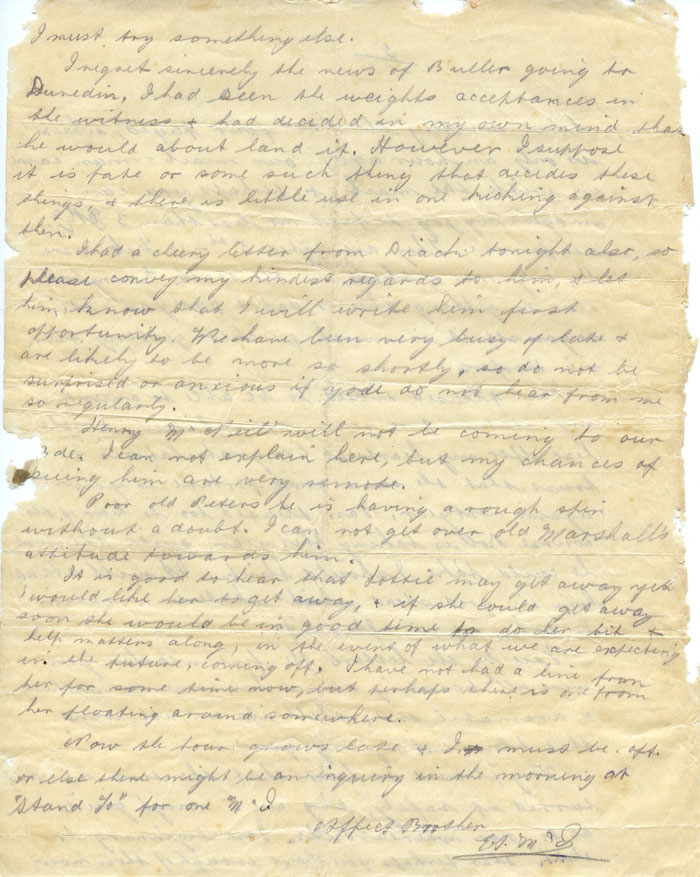 I must try something else.
I regret sincerely the news of Buller going to
Dunedin, I had seen the weights acceptances in
the witness & had decided in my own mind that
he would about land it. However I suppose
it is fate or some such thing that decides these
things, & there is little use in one kicking against
them.
I had a cheery letter from Diach tonight also, so
please convey my kindest regards to him, & let
him know that I will write him first
opportunity. We have been very busy of late &
are likely to be more so shortly, so do not be
surprised or anxious if you do not hear from me
so regularly.
Henry McNeil will not be coming to our
Bde. I can not explain here, but my chances of
seeing him are very remote.
Poor old Peters he is having a rough spin
without a doubt. I can not get over old Marshall's
attitude towards him.
It is good to hear that Tottie may get away yet
I would like her to get away, & if she could get away
soon she would be in good time to do her bit &
help matters along, in the event of what we are expecting
in the future, coming off. I have not had a line from
her for some time now, but perhaps there is one from
her floating around somewhere.
Now the hour grows late & I must be off.
or else there might be an inquiry in the morning at
"Stand To" for one
Affect Brother